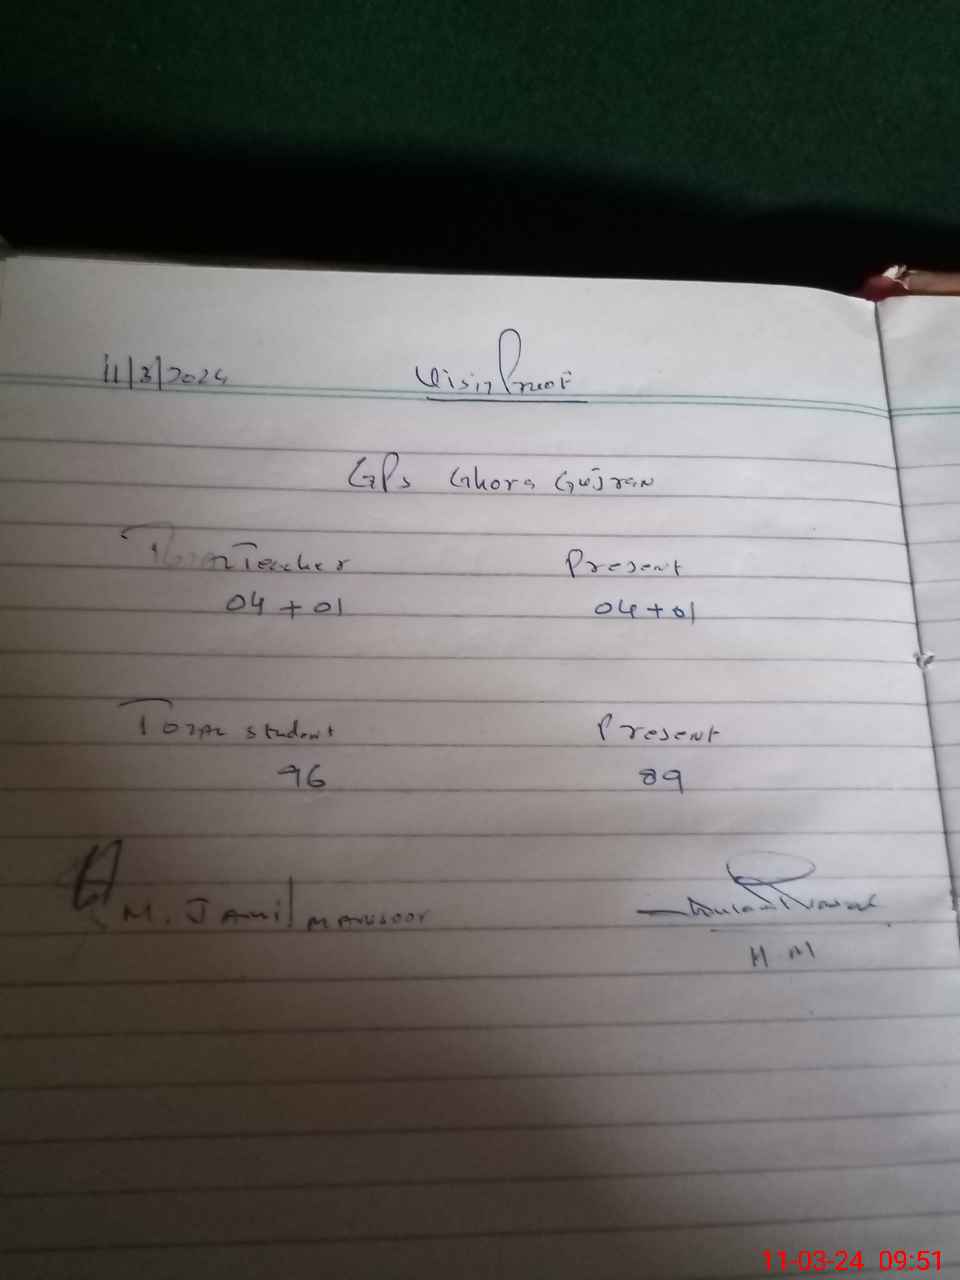 11/3/2024 Visit Proof
GPS Ghora Gujran
Total Teacher Present
04 + 01 04 + 01
Total student Present
96 89
M. Jamil Mansoor
H M
11-03-24 09:51